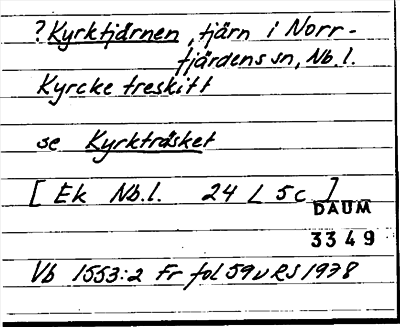 ? Kyrktjärnen, tjärn i Norr-
fjärdens sn, Nb. l.
Kyrcke treskitt
se Kyrkträsket
[ Ek Nb.l. 24 L 5c ]
DAUM
3349
Vb 1553:2 Fr fol 59v RS 1978